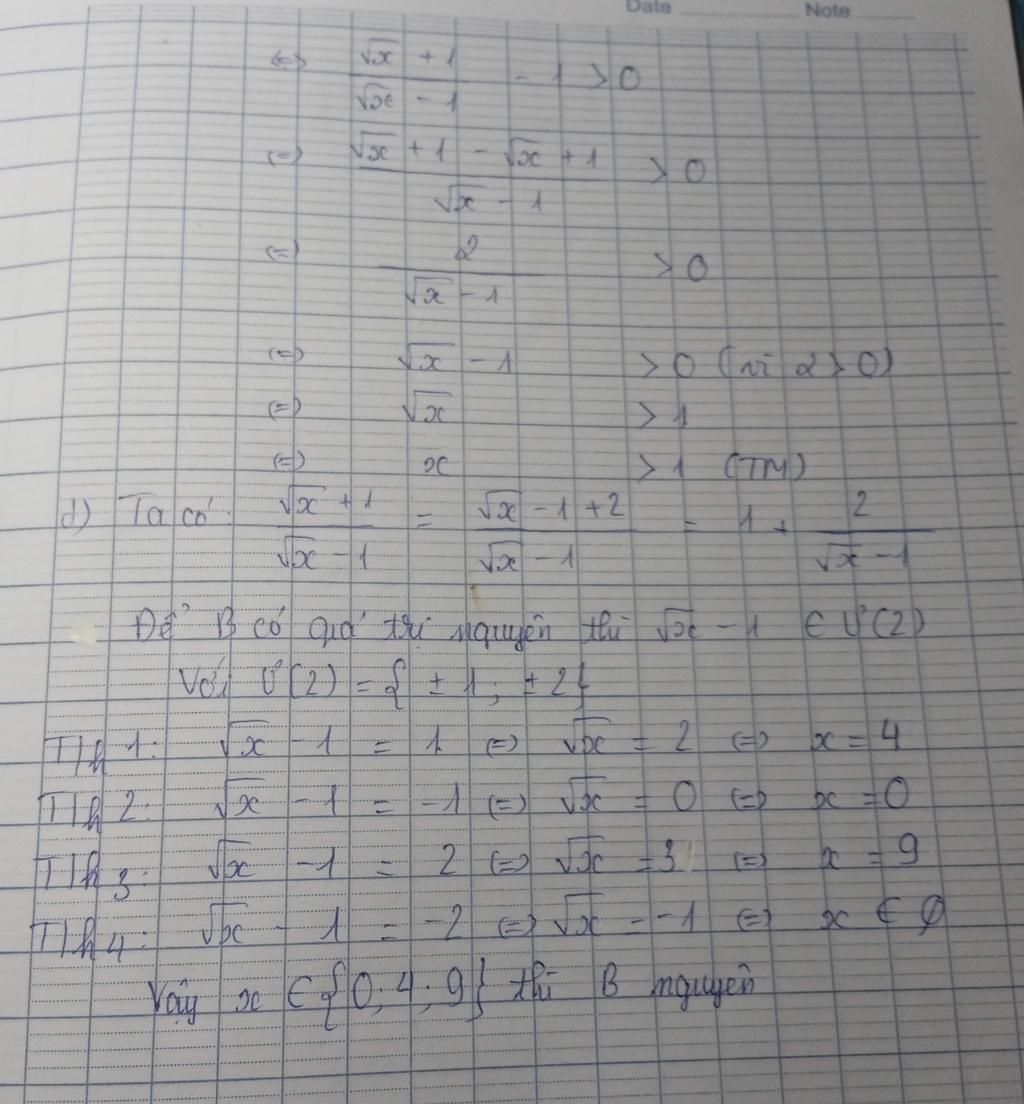 Date Note
(=) (√x + 1)/(√x - 1) - 1 > 0
(=) (√x + 1 - √x + 1)/(√x - 1) > 0
(=) 2/(√x - 1) > 0
(=) √x - 1 > 0 (vì 2 > 0)
(=) √x > 1
(=) x > 1 (TM)
d) Ta có: (√x + 1)/(√x - 1) = (√x - 1 + 2)/(√x - 1) = 1 + 2/(√x - 1)
Để B có giá trị nguyên thì √x - 1 ∈ Ư(2)
Với Ư(2) = { ±1; ±2}
Th1: √x - 1 = 1 (=) √x = 2 (=) x = 4
Th2: √x - 1 = -1 (=) √x = 0 (=) x = 0
Th3: √x - 1 = 2 (=) √x = 3 (=) x = 9
Th4: √x - 1 = -2 (=) √x = -1 (=) x ∈ ∅
Vậy x ∈ {0; 4; 9} thì B nguyên